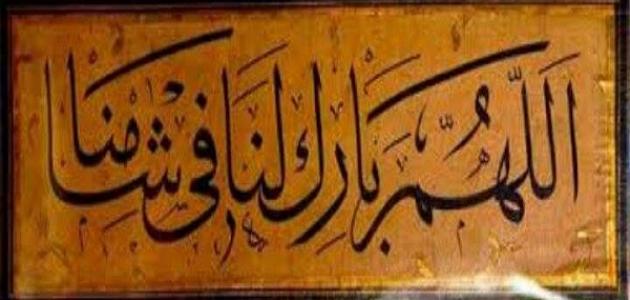 اَللّٰهُمَّ بَارِك لَنَا فى شَامِنَا